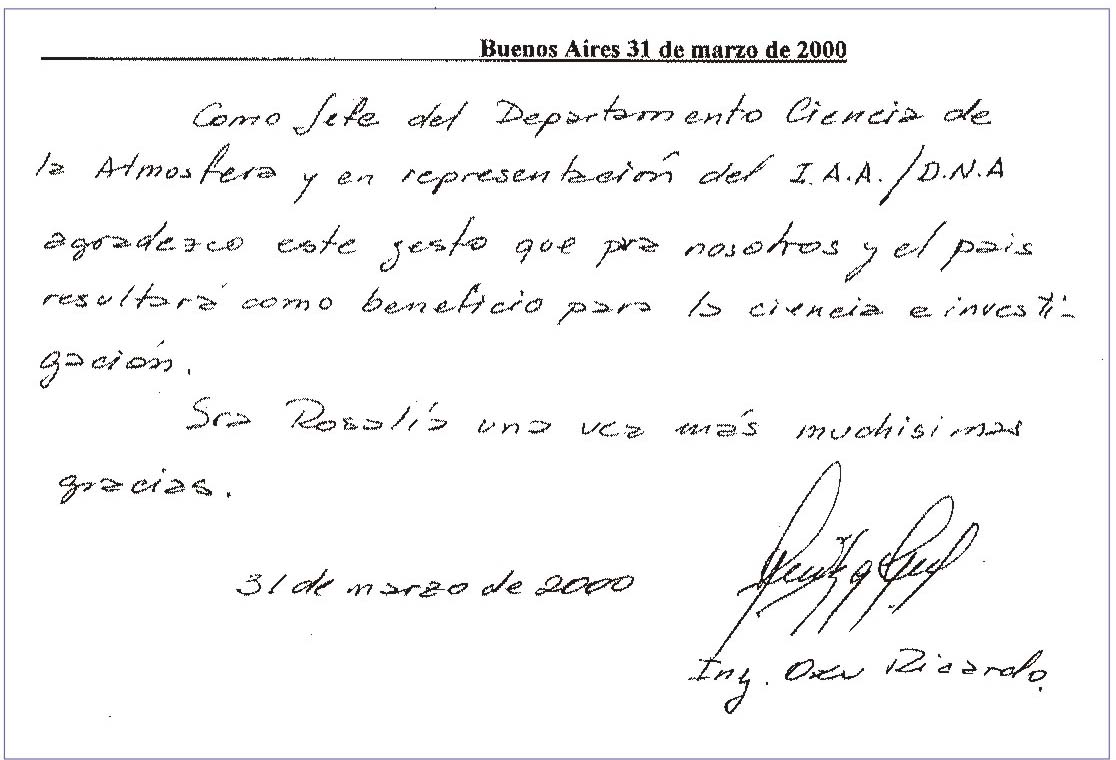 Buenos Aires 31 de marzo de 2000
Como Jefe del Departamento Ciencia de
la Atmosfera y en representación del I.A.A./D.N.A
agradezco este gesto que pra nosotros y el pais
resultará como beneficio para la ciencia e investi-
gación.
Sra Rosalía una vez más muchisimas
gracias.
31 de marzo de 2000
Ing. Ricardo.